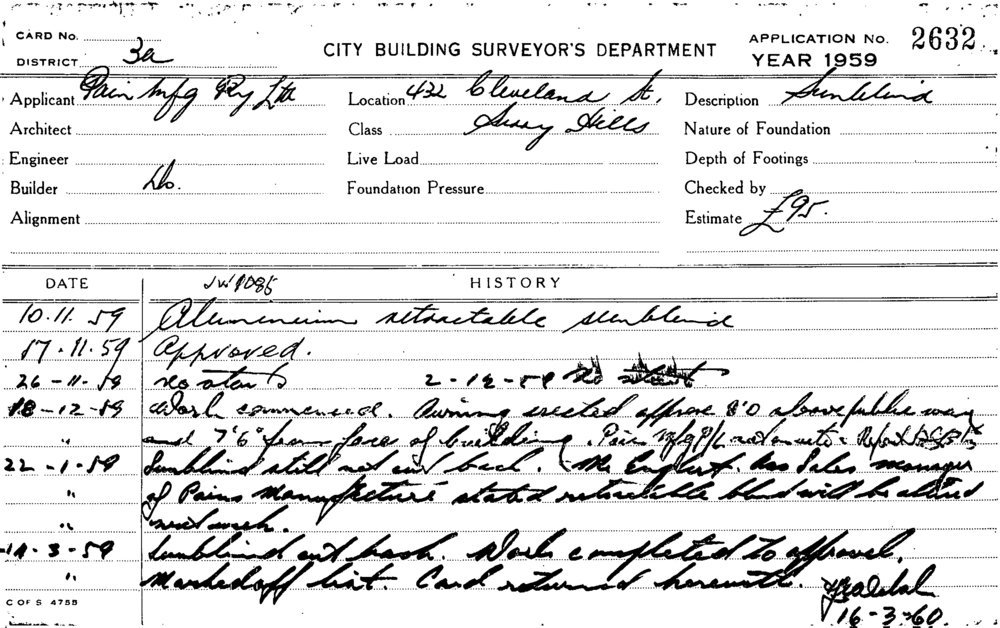 CARD No.
CITY BUILDING SURVEYOR'S DEPARTMENT
APPLICATION No. 2632
DISTRICT 3a
YEAR 1959
Applicant Pain Mfg Py Ltd
Location 432 Cleveland St.
Description Sunblind
Architect
Class Surry Hills
Nature of Foundation
Engineer
Live Load
Depth of Footings
Builder Do.
Foundation Pressure
Checked by
Alignment
Estimate £95.
DATE
HISTORY
10.11.59 Aluminium retractable sunblind
17.11.59 Approved.
26-11-59 no start 2-12-59 No start
18-12-59 Work commenced. Awning erected approx 8'0 above public way
" and 7'6" from face of building. Pain Mfg P/L
22-1-59 Sunblind still not cut back. Mr Ass Sales manager
" of Pains Manufacture stated retractable blind will be altered
" next week.
14-3-59 Sunblind cut back. Work completed to approval.
" Marked off list. Card returned herewith.
16-3-60.
C OF S 4755